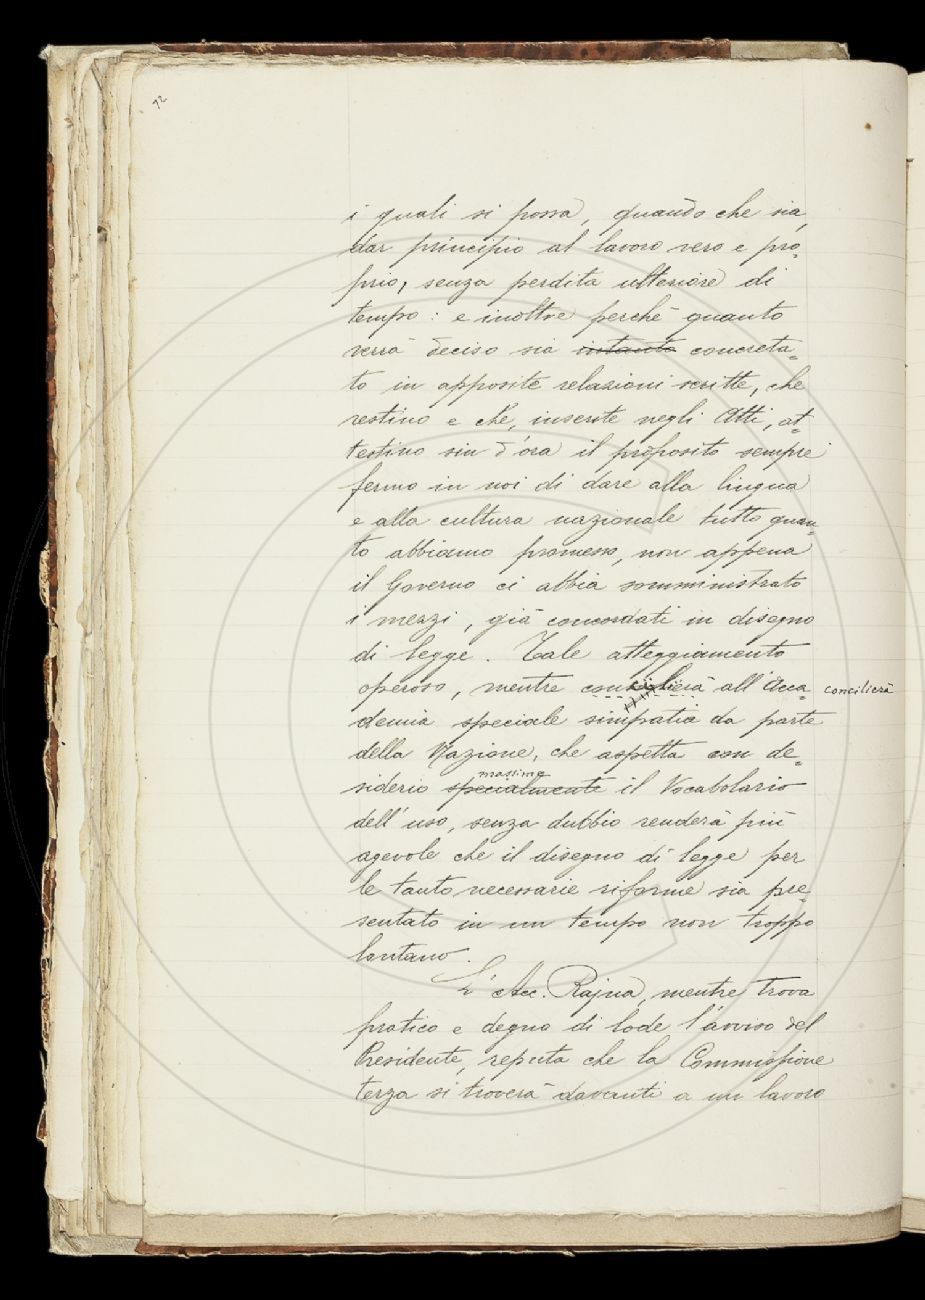 12
i quali si possa, quando che sia,
dar principio al lavoro vero e pro=
prio, senza perdita ulteriore di
tempo: e inoltre perchè quanto
verrà deciso sia intanto concreta=
to in apposite relazioni scritte, che
restino e che, inserite negli Atti, at=
testino sin d'ora il proposito sempre
fermo in noi di dare alla lingua
e alla cultura nazionale tutto quan=
to abbiamo promesso, non appena
il Governo ci abbia somministrato
i mezzi, già concordati in disegno
di legge. Tale atteggiamento
operoso, mentre all'Acca= concilierà
demia speciale simpatia da parte
della Nazione, che aspetta con de=
massime
siderio specialmente il Vocabolario
dell'uso, senza dubbio renderà più
agevole che il disegno di legge per
le tanto necessarie riforme sia pre=
sentato in un tempo non troppo
lontano.
L'Acc. Rajna, mentre trova
pratico e degno di lode l'avviso del
Presidente, reputa che la Commissione
terza si troverà davanti a un lavoro